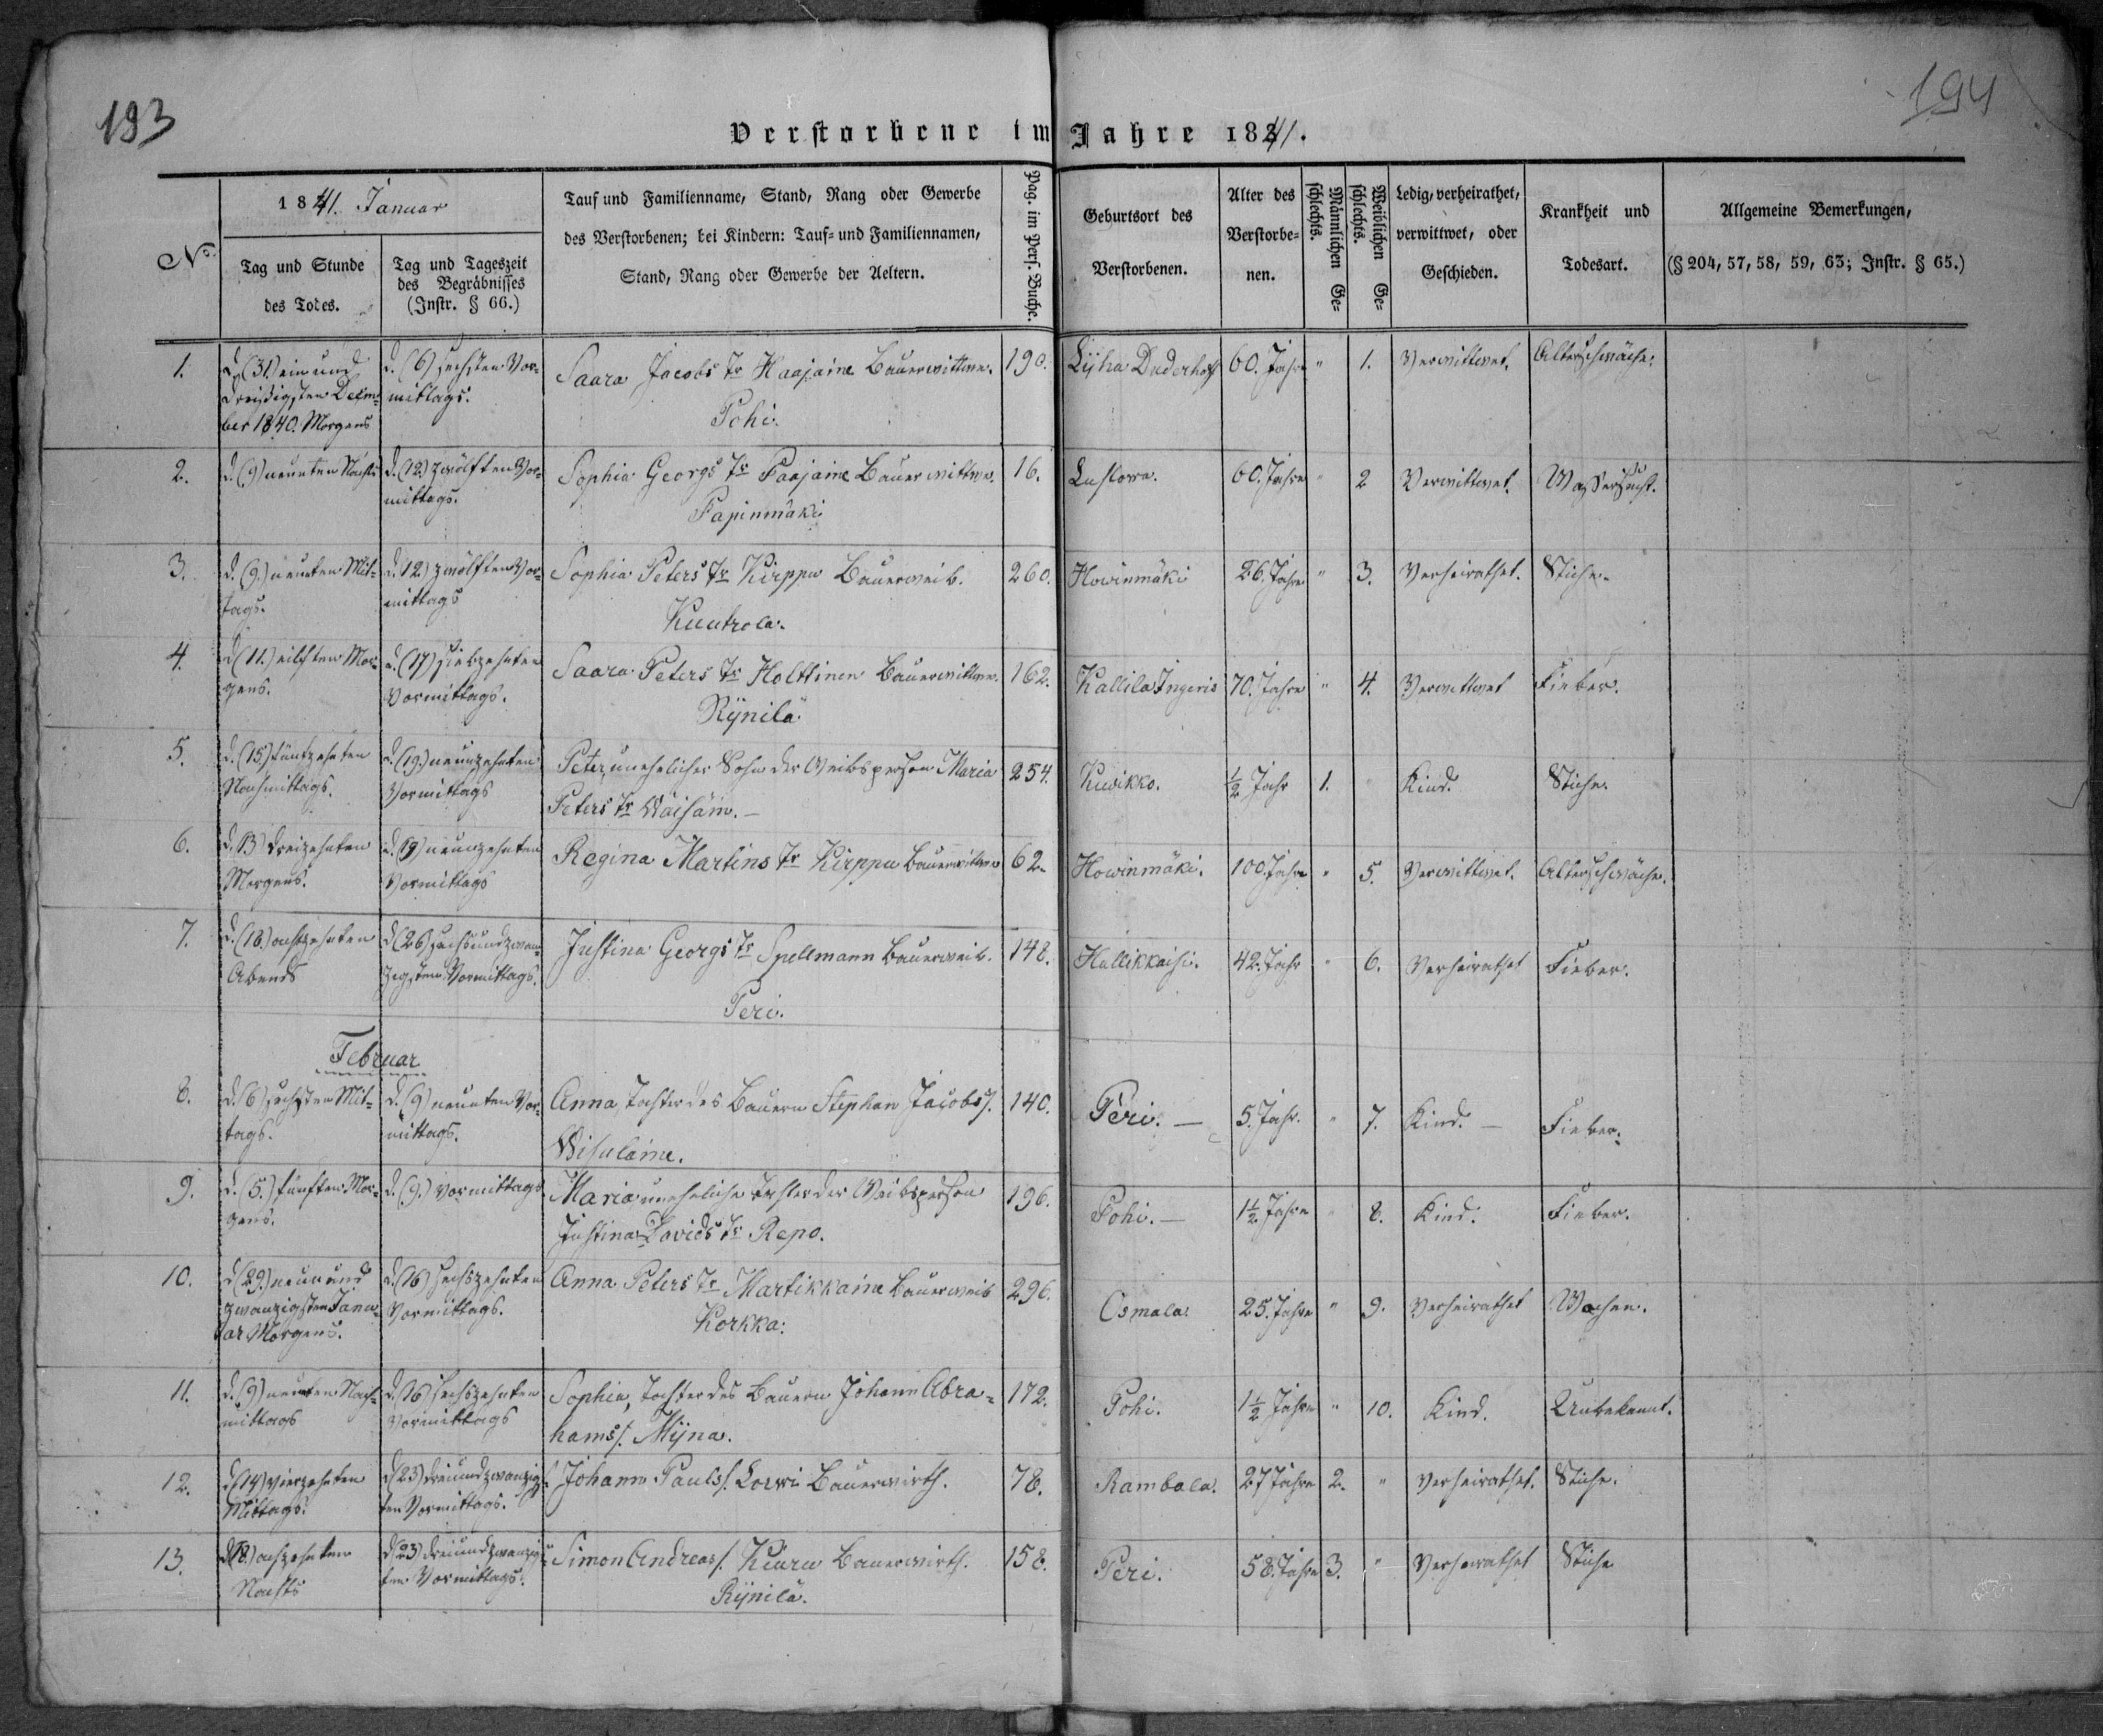 193
194
Verstorbene im Jahre 1841.
No.
1841. Januar
Tag und Stunde des Todes.
Tag und Tageszeit des Begräbnisses (Instr. § 66.)
Tauf und Familienname, Stand, Rang oder Gewerbe
des Verstorbenen; bei Kindern: Tauf- und Familiennamen,
Stand, Rang oder Gewerbe der Aeltern.
Pag. im Pers. Buche.
Geburtsort des Verstorbenen.
Alter des Verstorbe-nen.
Männlichen Ge-schlechts.
Weiblichen Ge-schlechts.
Ledig, verheirathet, verwittwet, oder Geschieden.
Krankheit und Todesart.
Allgemeine Bemerkungen,
(§ 204, 57, 58, 59, 63; Instr. § 65.)
1. d. (31) ein und d. (6) sechsten Vor- Saara Jacobs Tr Haajaine Bauerwittwe. 190. Lijha Duderhoff 60. Jahr " 1. Verwittwet. Altersschwäche.
dreißigsten mittags. Pohi.
ber 1840. Morgens
2. d. (9) neunten Nachts d. (12) zwölften Vor- Sophia Georgs Tr Paajaine Bauerwittwe. 16. 60. Jahre " 2 Verwittwet. Wassersucht.
mittags. Papinmäki
3. d. (9.) neunten Mit- d. (12) zwölften Vor- Sophia Peters Tr Kirppu Bauerweib. 260. Howinmäki 26. Jahre " 3. Verheirathet. Stiche.
tags. mittags Kuutrola.
4. d (11.) eilften Mor- d. (17) siebzehnten Saara Peters Tr Holttinen Bauerwittwe. 162. Kallila Ingeris 70. Jahre " 4. Verwittwet Fieber.
gens. Vormittags. Rÿnilä
5. d. (15) fünfzehnten d. (19.) neunzehnten Peter, unehelicher Sohn der Weibsperson Maria 254. Kuikko. ½ Jahr 1. " Kind. Stiche.
Nachmittags. Vormittags Peters Tr Wäisäin. –
6. d. 13) dreizehnten d. (19) neunzehnten Regina Martins Tr Kirppu Bauerwittwe 62. Howinmäki. 100. Jahre " 5. Verwittwet. Altersschwäche.
Morgens. Vormittags
7. d. (18.) achtzehnten d (26) sechsundzwan- Justina Georgs Tr Spellmann Bauerweib. 148. Hallikkaisi. 42. Jahr " 6. Verheirathet Fieber.
Abends zigsten Vormittags. Peri.
Februar
8. d. (6) sechsten Mit- d. (9) neunten Vor- Anna Tochter des Bauern Stephan Jacobs/. 140. Peri. – 5. Jahr. " 7. Kind. – Fieber.
tags. mittags. Wisulaine.
9. d. (5.) fünften Mor- d. (9.) Vormittags Maria uneheliche Tochter der Weibsperson 196. Pohi. – 1½ Jahre " 8. Kind. Fieber.
gens. Justina Davids Tr Repo.
10. d (29.) neun und d. (16) sechszehnten Anna Peters Tr Martikkaine Bauerweib 296. Osmala. 25. Jahre " 9. Verheirathet Wochen.
zwanzigsten Janu- Vormittags. Korkka.
ar Morgens.
11. d. (9) neunten Nach- d. (16) sechszehnten Sophia, Tochter des Bauern Johann Abra- 172. Pohi. 1½ Jahre " 10. Kind. Unbekannt.
mittags Vormittags hams/. Mÿna.
12. d (14) vierzehnten d (23) dreiundzwanzigs- Johann Pauls/. Koiwi Bauerwirth. 78. Rambala. 27 Jahre 2. " Verheirathet. Stiche.
Mittags. ten Vormittags.
13. d (18.) achzehnten d (23) dreiundzwanzigs- Simon Andreas/. Kiuru Bauerwirth. 158. Peri. 58. Jahre 3. " Verheirathet Stiche
Nachts ten Vormittags. Rÿnilä.